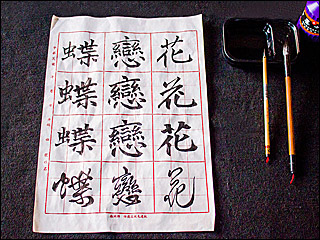 蝶戀花
蝶戀花
蝶戀花
蝶戀花